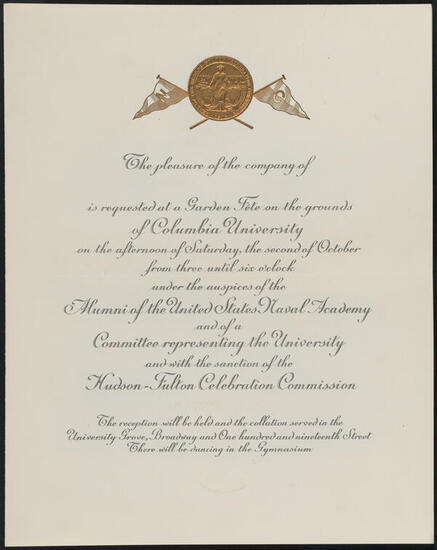 N
C
The pleasure of the company of
is requested at a Garden Fête on the grounds
of Columbia University
on the afternoon of Saturday, the second of October
from three until six o'clock
under the auspices of the
Alumni of the United States Naval Academy
and of a
Committee representing the University
and with the sanction of the
Hudson-Fulton Celebration Commission
The reception will be held and the collation served in the
University Grove, Broadway and One hundred and nineteenth Street
There will be dancing in the Gymnasium